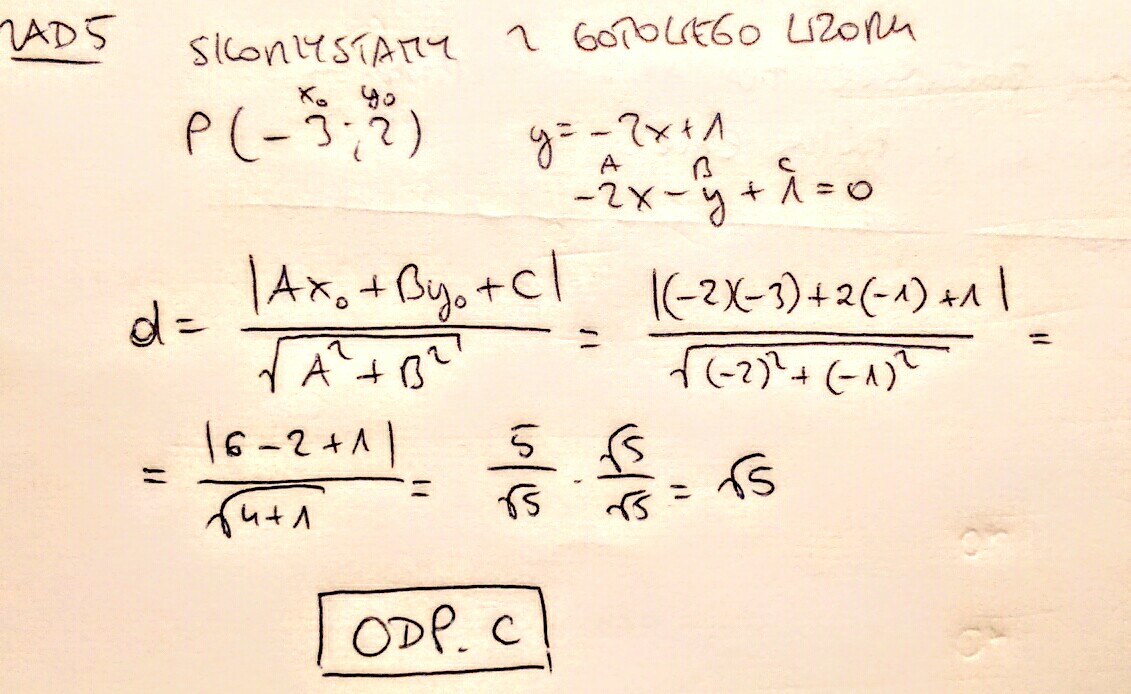 ZAD5 SKORZYSTAMY Z GOTOWEGO WZORU
x₀ y₀
P(-3;2) y = -2x+1
A B C
-2x - y + 1 = 0
d = |Ax₀ + By₀ + C| / √(A² + B²) = |(-2)(-3)+2(-1)+1| / √((-2)² + (-1)²) =
= |6-2+1| / √(4+1) = 5/√5 · √5/√5 = √5
ODP. C